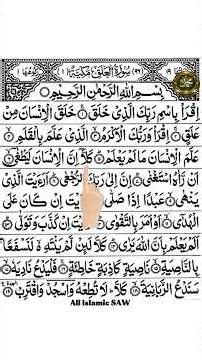 سُورَةُ الْعَلَقِ مَكِّيَّةٌ
بِسْمِ اللهِ الرَّحْمٰنِ الرَّحِيْمِ
اِقْرَاْ بِاسْمِ رَبِّكَ الَّذِيْ خَلَقَ ۝ خَلَقَ الْاِنْسَانَ مِنْ
عَلَقٍ ۝ اِقْرَاْ وَرَبُّكَ الْاَكْرَمُ ۝ الَّذِيْ عَلَّمَ بِالْقَلَمِ ۝
عَلَّمَ الْاِنْسَانَ مَا لَمْ يَعْلَمْ ۝ كَلَّاۤ اِنَّ الْاِنْسَانَ لَيَطْغٰۤى ۝
اَنْ رَّاٰهُ اسْتَغْنٰى ۝ اِنَّ اِلٰى رَبِّكَ الرُّجْعٰى ۝ اَرَءَيْتَ الَّذِيْ
يَنْهٰى ۝ عَبْدًا اِذَا صَلّٰى ۝ اَرَءَيْتَ اِنْ كَانَ عَلَى
الْهُدٰۤى ۝ اَوْ اَمَرَ بِالتَّقْوٰى ۝ اَرَءَيْتَ اِنْ كَذَّبَ وَتَوَلّٰى ۝
اَلَمْ يَعْلَمْ بِاَنَّ اللهَ يَرٰى ۝ كَلَّا لَئِنْ لَّمْ يَنْتَهِ ۙ لَنَسْفَعًا
بِالنَّاصِيَةِ ۝ نَاصِيَةٍ كَاذِبَةٍ خَاطِئَةٍ ۝ فَلْيَدْعُ نَادِيَهٗ ۝
سَنَدْعُ الزَّبَانِيَةَ ۝ كَلَّا ؕ لَا تُطِعْهُ وَاسْجُدْ وَاقْتَرِبْ ۝
All Islamic SAW